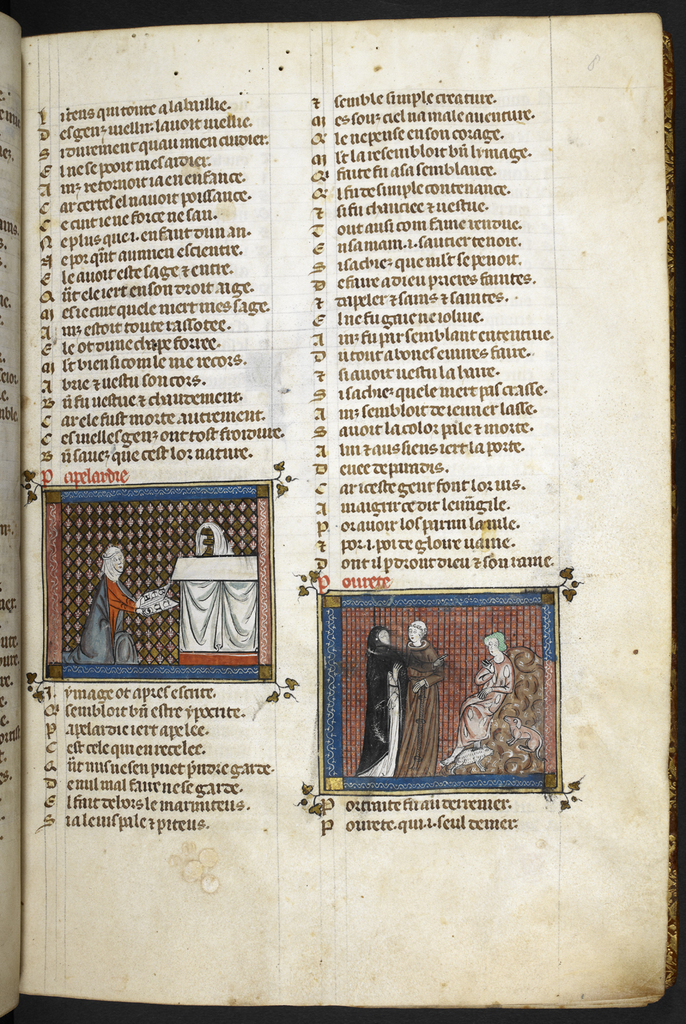 L i tens qui toute a la baillie.
D es genz uiellir. lauoit uiellie.
S i durement quau mien cuidier.
E l ne se pooit mes aidier.
A inz retornoit ia en enfance.
C ar certes el nauoit poissance.
C e cuit ie ne force ne san.
N e plus que .i. enfant dun an.
N e por qant au mien escientre.
E le auoit este sage et entre.
Q ant ele iert en son droit aige.
M es ie cuit quele niert mes sage.
A inz estoit toute rassotee.
E le ot dune chape forree.
M lt bien si com ie me recors.
A brie et uestu son cors.
B n fu uestue et chaudement.
C ar ele fust morte autrement.
C es uielles genz ont tost froidure.
B n sauez que cest lor nature.
P apelardie
I. ymage ot apres escrite.
Q. sembloit bn estre ypocrite.
P apelardie iert apelee.
C est cele qui en recelee.
Q ant nus ne sen puet prendre garde.
D e nul mal faire ne se garde.
E l fait dehors le marmiteus.
S i a le uis pale et piteus.
8
et semble simple creature.
M es souz ciel na male auenture.
Q. le ne pense en son corage.
M lt la resembloit bn lymage.
Q. faite fu a sa semblance.
Q. l fu de simple contenance.
et si fu chauciee et uestue.
T out ausi com fame rendue.
E n sa main .i. sautier tenoit.
S i sachiez que mlt se penoit.
D e faire a dieu prieres faintes.
et dapeler et sains et saintes.
E l ne fu gaie ne ioliue.
A inz fu par semblant ententiue.
D u tout a bones euures faire.
et si auoit uestu la haire.
S i sachiez quele niert pas crasse.
A inz sembloit de ieuner lasse.
S auoit la color pale et morte.
A lui et aus siens iert la porte.
D euee de paradis.
C ar iceste gent font lor uis.
A maigrir ce dit leuangile.
P or auoir los parmi la uile.
et por .i. poi de gloire uaine.
D ont il perdront dieu et son raine.
P ourete
P ortraite fu au derrenier.
P ourete. qui .i. seul denier